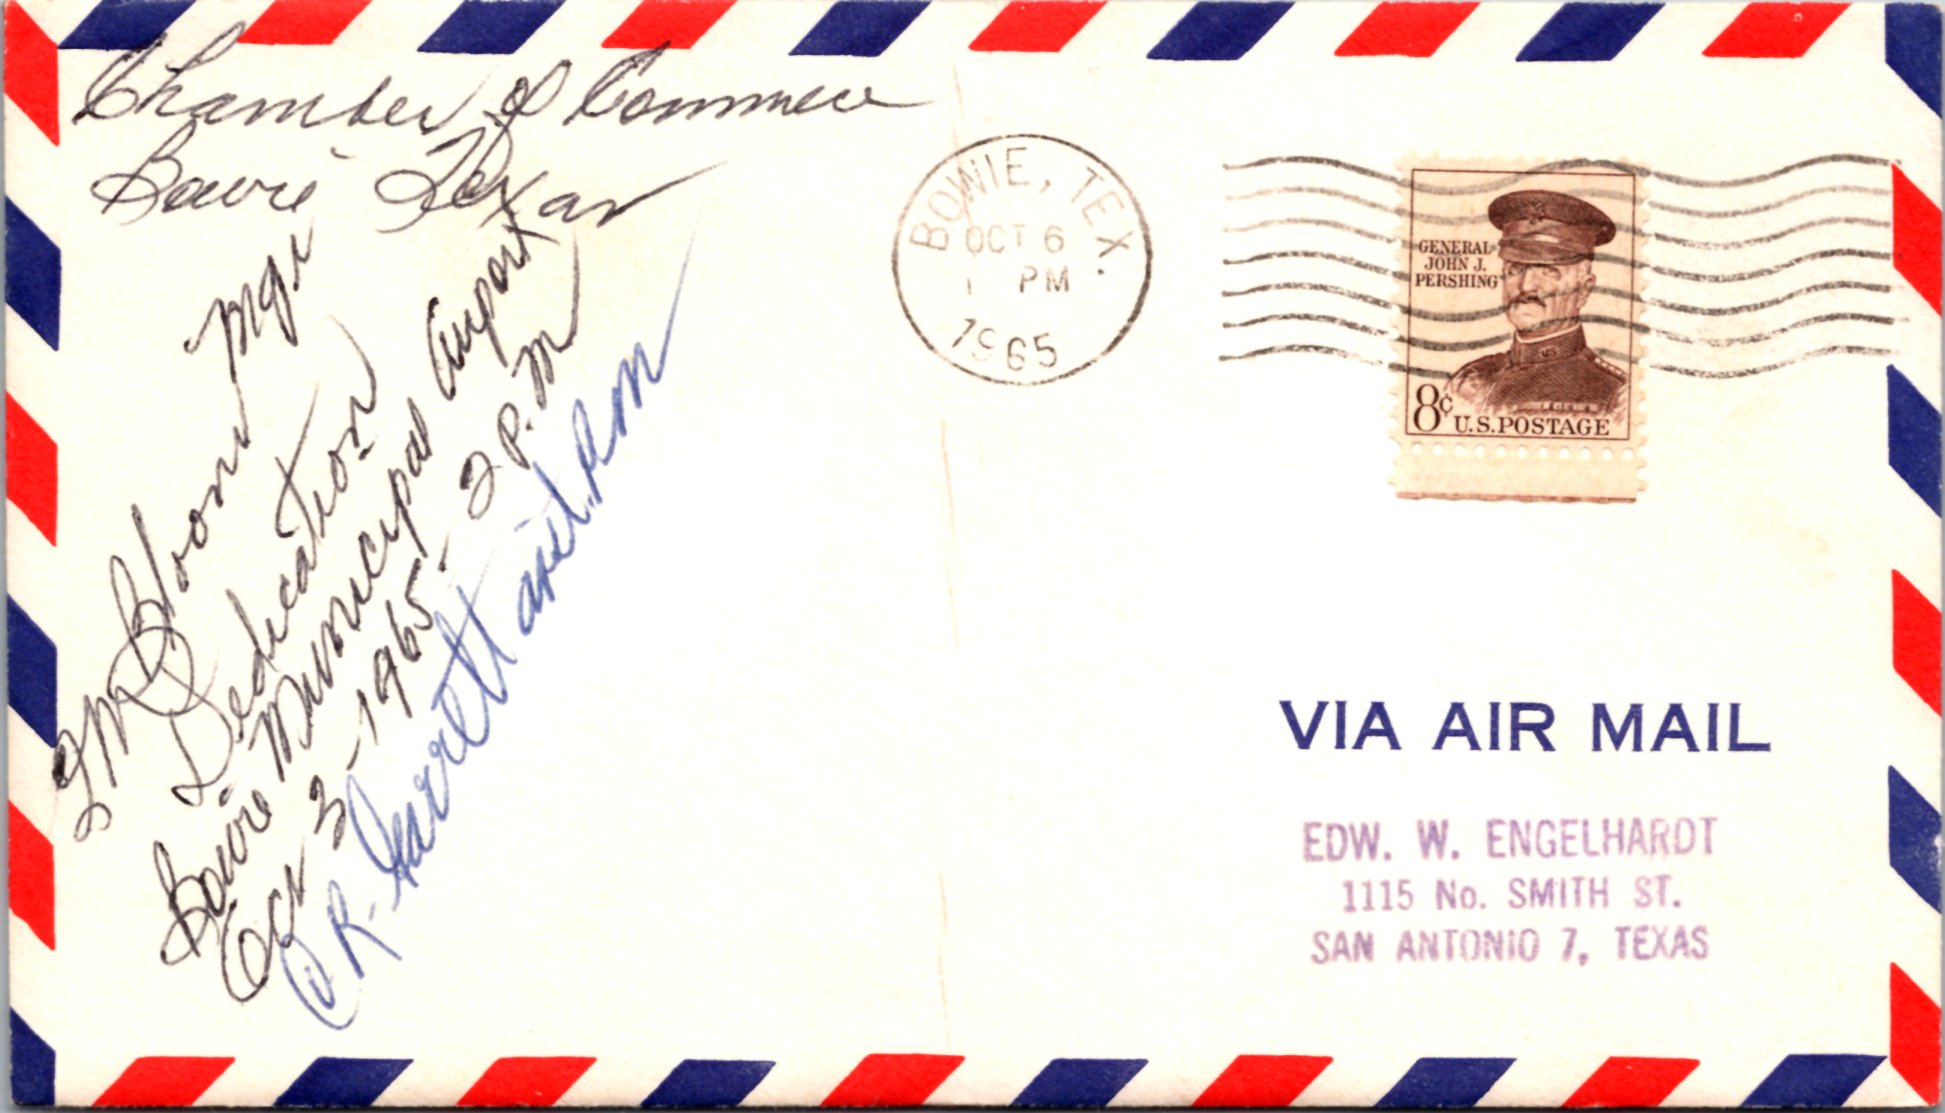 Chamber of Commerce
Bowie Texas
BOWIE, TEX.
OCT 6
1 PM
1965
GENERAL
JOHN J.
PERSHING
8¢ U.S.POSTAGE
Bloom Mgr
Dedication
Bowie Municipal Airport
Oct 3-1965- 2 P.M
C R. Garrett asst. P.M
VIA AIR MAIL
EDW. W. ENGELHARDT
1115 No. SMITH ST.
SAN ANTONIO 7, TEXAS